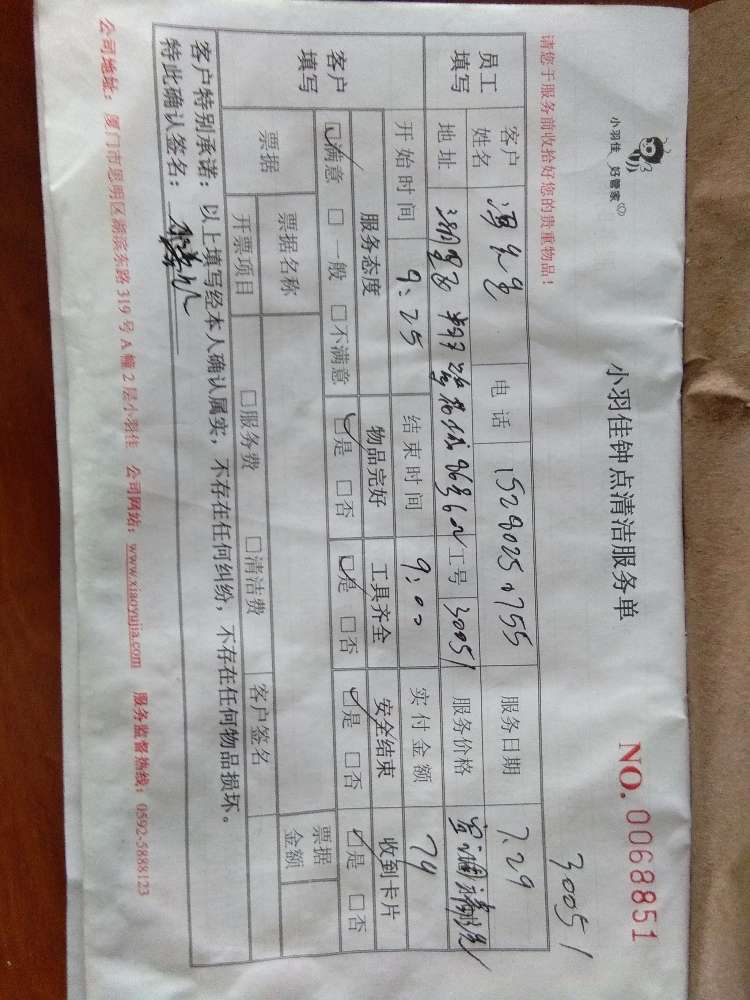 小羽佳 好管家
小羽佳钟点清洁服务单
30051
NO. 0068851
请您于服务前收拾好您的贵重物品！
员工填写 客户姓名 电话 服务日期 7.29
地址 工号 30051 服务价格
客户填写 开始时间 9:25 结束时间 9:00 实付金额 74
服务态度 物品完好 工具齐全 安全结束 收到卡片
☑满意 □一般 □不满意 ☑是 □否 ☑是 □否 ☑是 □否 ☑是 □否
票据 票据名称 票据金额
开票项目 □服务费 □清洁费 客户签名
客户特别承诺：以上填写经本人确认属实，不存在任何纠纷，不存在任何物品损坏。
特此确认签名：
公司地址：厦门市思明区湖滨东路319号A幢2层小羽佳 公司网站：www.xiaoyujia.com 服务监督热线：0592-5888123